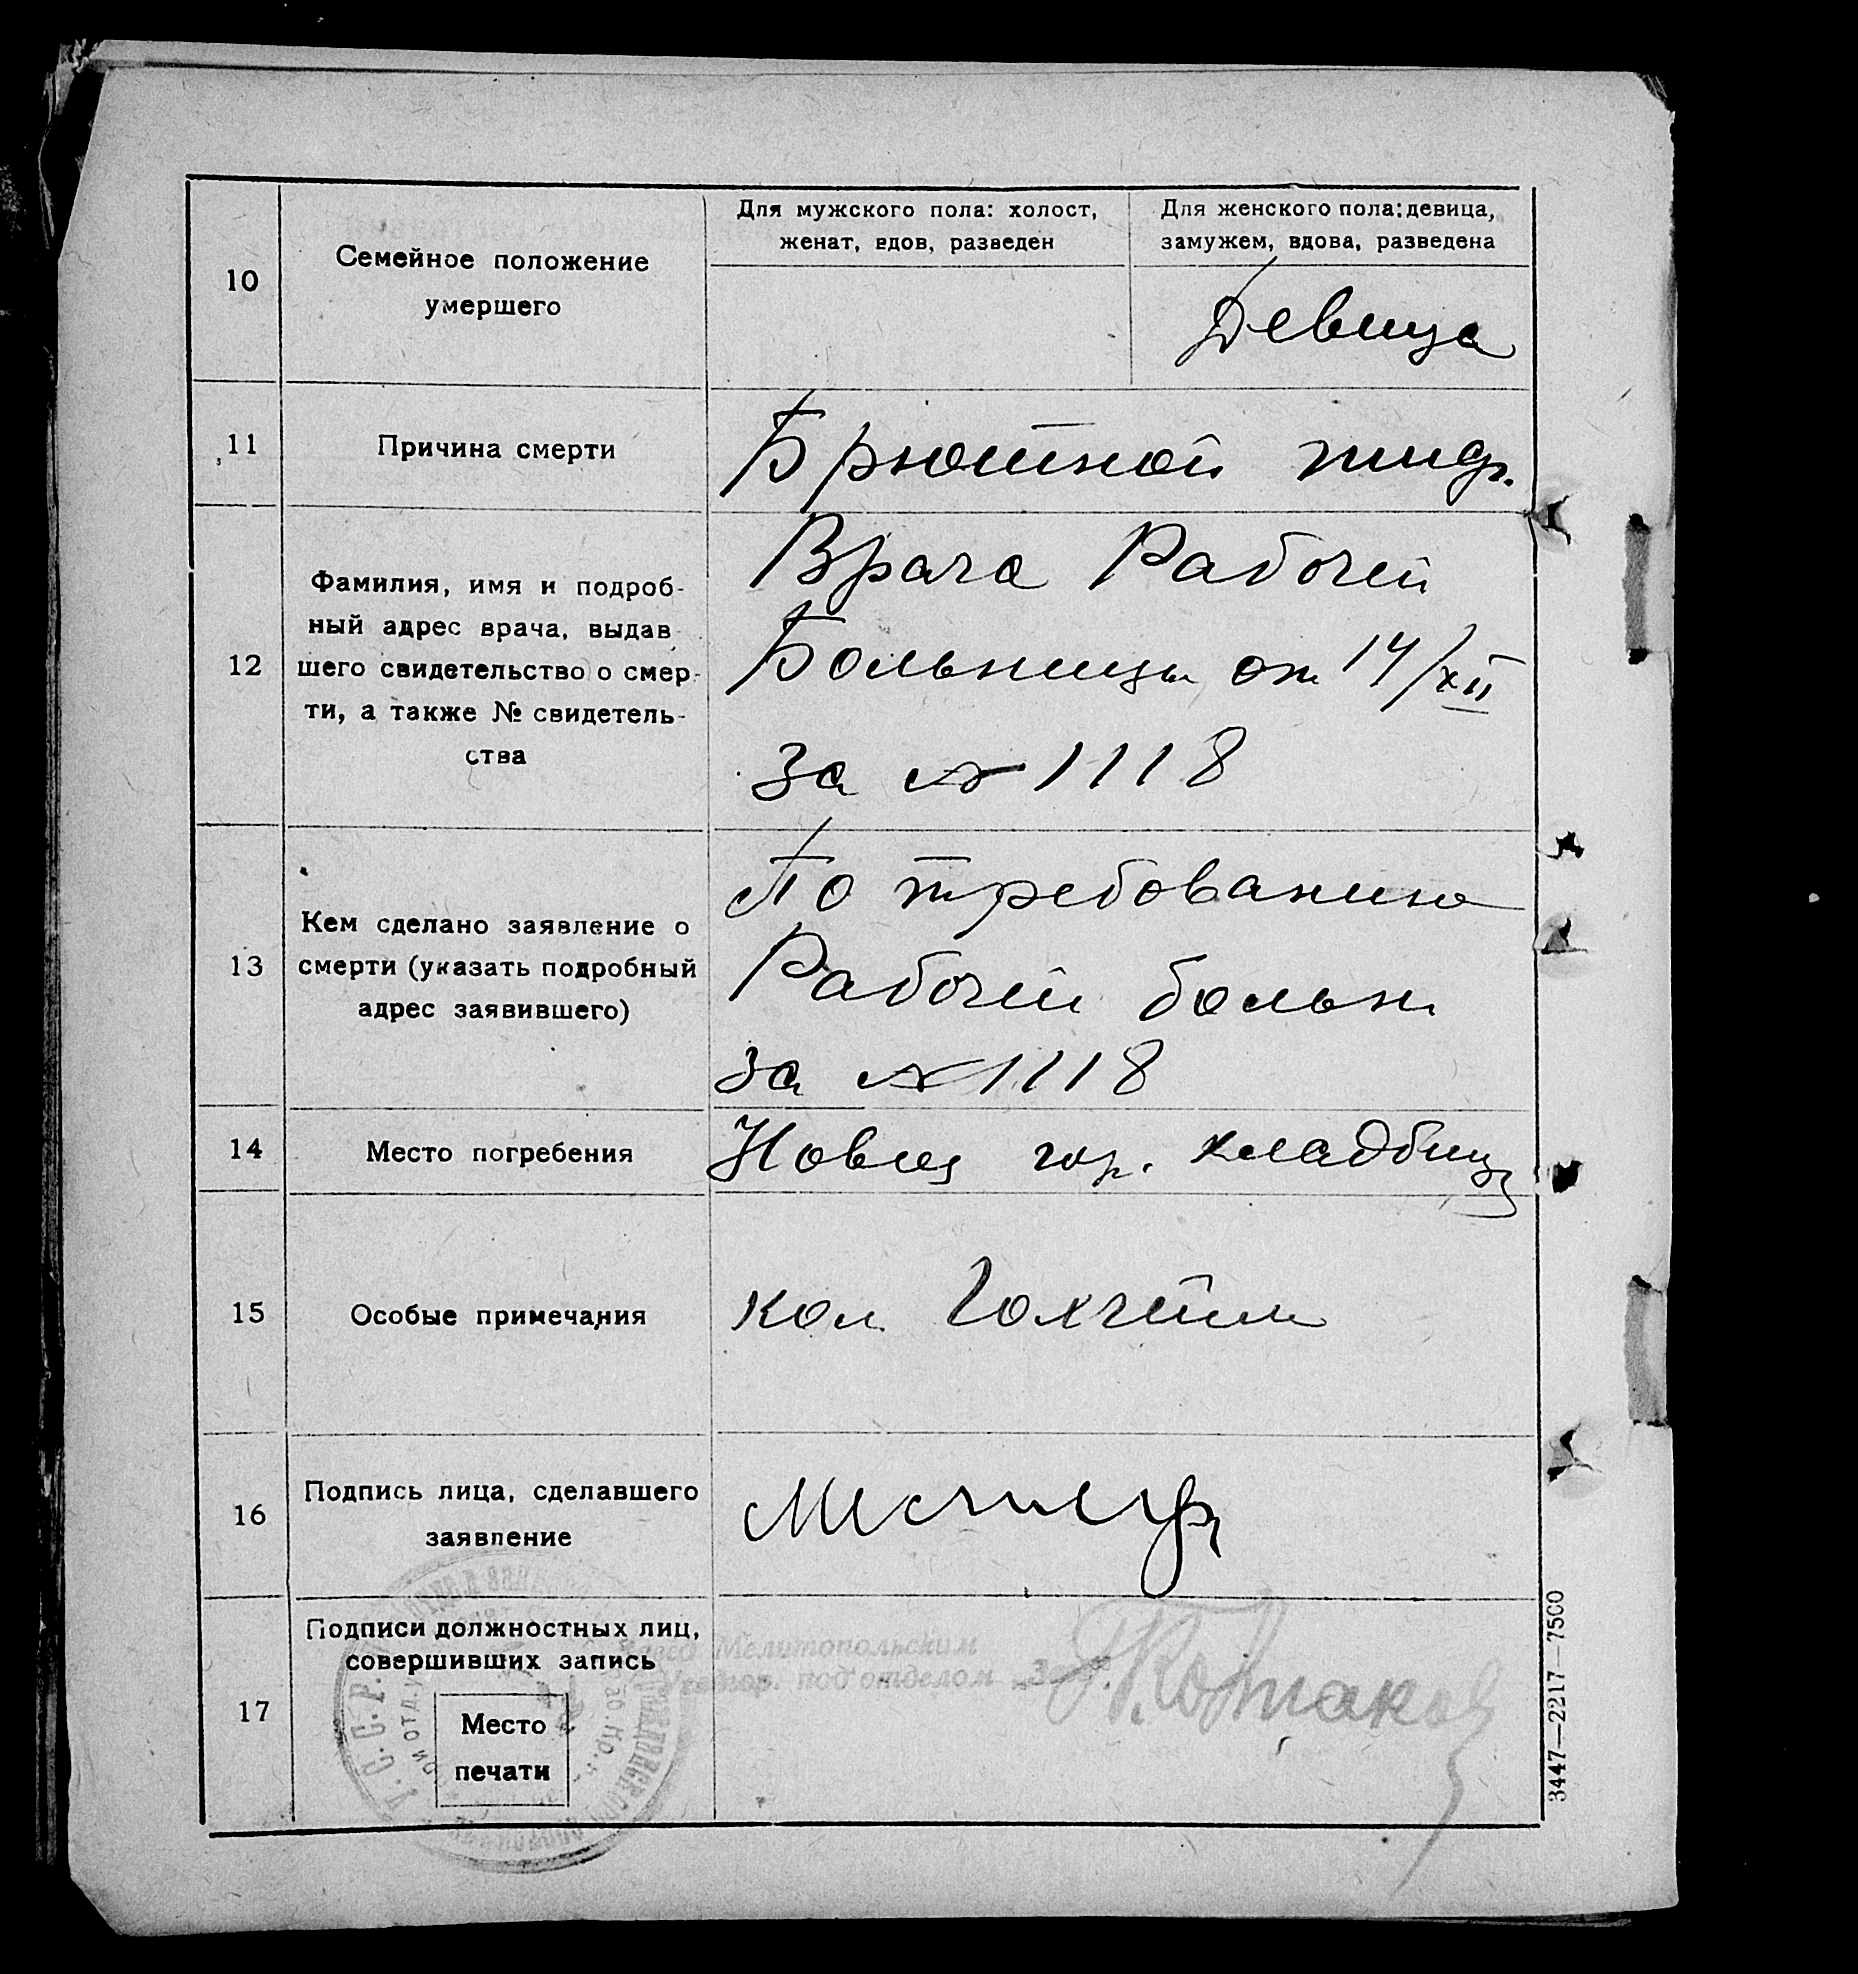 10
Семейное положение
умершего
Для мужского пола: холост,
женат, вдов, разведен
Для женского пола: девица,
замужем, вдова, разведена
Девица
11
Причина смерти
Брюшной тиф.
12
Фамилия, имя и подроб-
ный адрес врача, выдав
шего свидетельство о смер-
ти, а также № свидетель-
ства
Врача Рабочей
Больницы от 14/XII
за № 1118
13
Кем сделано заявление о
смерти (указать подробный
адрес заявившего)
По требованию
Рабочей больн.
за № 1118
14
Место погребения
Новом гор. кладбище
15
Особые примечания
кол.
16
Подпись лица, сделавшего
заявление
17
Подписи должностных лиц,
совершивших запись
Место
печати
Мелитопольским
под'отделом
У.С.С.Р.
3447—2217—7500